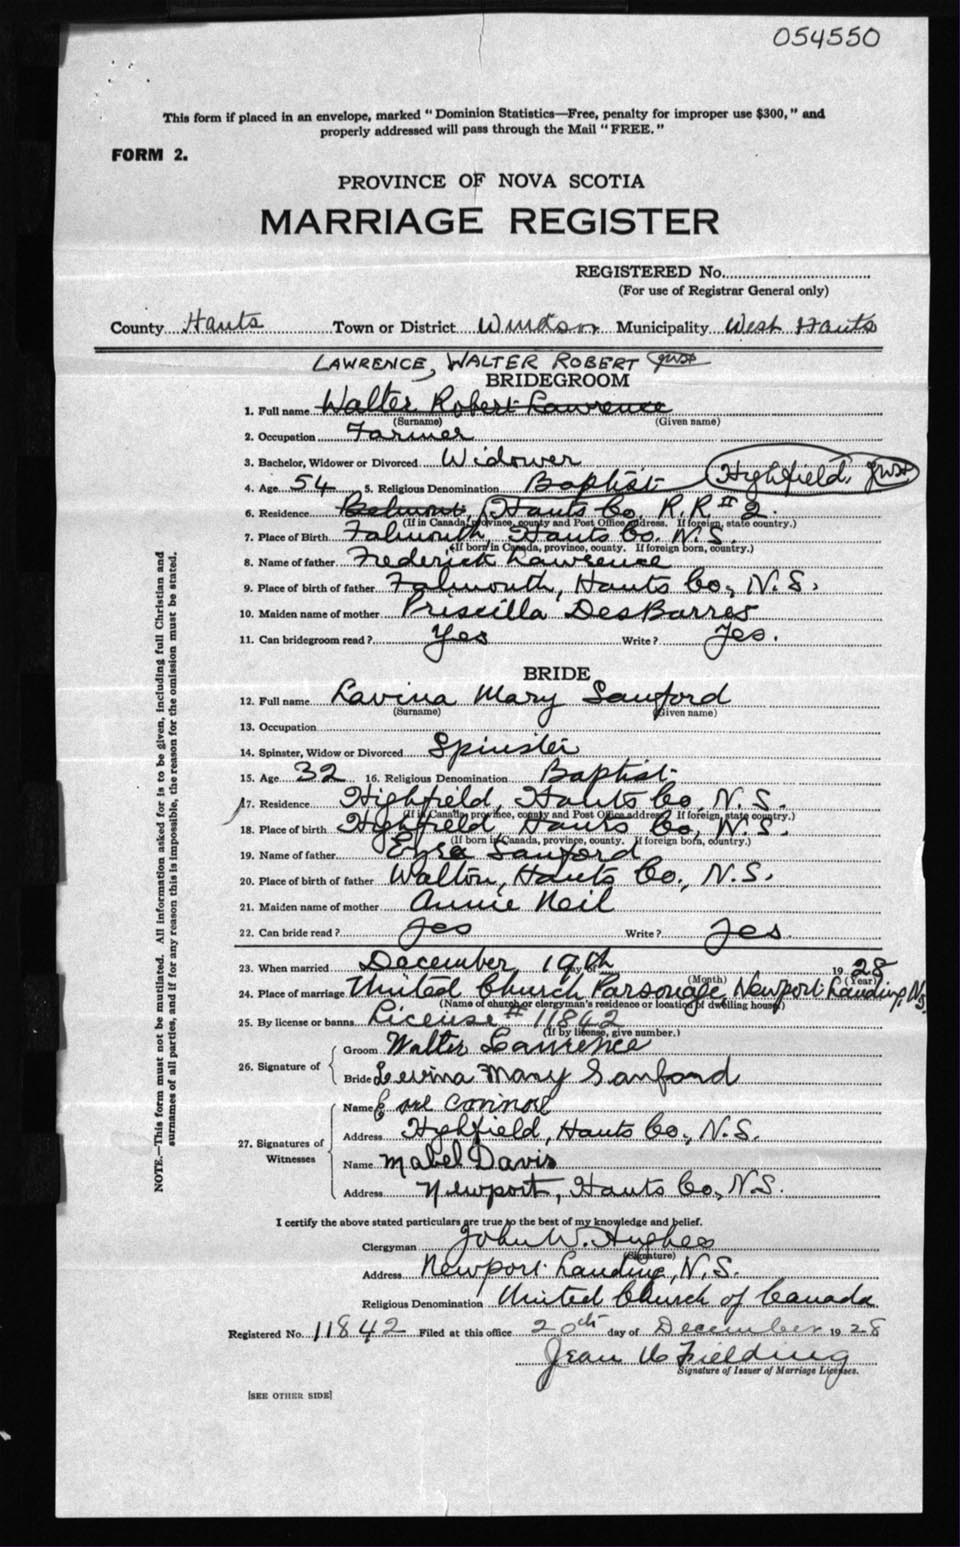 054550
This form if placed in an envelope, marked "Dominion Statistics—Free, penalty for improper use $300," and
properly addressed will pass through the Mail "FREE."
FORM 2.
PROVINCE OF NOVA SCOTIA
MARRIAGE REGISTER
REGISTERED No.
(For use of Registrar General only)
County Hants Town or District Windsor Municipality West Hants
LAWRENCE, WALTER ROBERT
BRIDEGROOM
1. Full name Walter Robert Lawrence
(Surname) (Given name)
2. Occupation Farmer
3. Bachelor, Widower or Divorced Widower
Highfield
4. Age 54 5. Religious Denomination Baptist
6. Residence Belmont, Hants Co, R.R # 2.
(If in Canada, province, county and Post Office address. If foreign, state country.)
7. Place of Birth Falmouth, Hants Co. N.S.
(If born in Canada, province, county. If foreign born, country.)
8. Name of father Frederick Lawrence
9. Place of birth of father Falmouth, Hants Co, N.S.
10. Maiden name of mother Priscilla DesBarres
11. Can bridegroom read? Yes Write? Yes.
BRIDE
12. Full name Lavina Mary Sanford
(Surname) (Given name)
13. Occupation
14. Spinster, Widow or Divorced Spinster
15. Age 32 16. Religious Denomination Baptist
17. Residence Highfield, Hants Co, N.S.
(If in Canada, province, county and Post Office address. If foreign, state country.)
18. Place of birth Highfield, Hants Co, N.S.
(If born in Canada, province, county. If foreign born, country.)
19. Name of father Ezra Sanford
20. Place of birth of father Walton, Hants Co., N.S.
21. Maiden name of mother Annie Neil
22. Can bride read? Yes Write? Yes.
23. When married December, 19th day of 1928
(Month) (Year)
24. Place of marriage United Church Parsonage, Newport Landing N.S.
(Name of church or clergyman's residence or location of dwelling house)
25. By license or banns License # 11842
(If by license, give number.)
26. Signature of
Groom Walter Lawrence
Bride Levina Mary Sanford
27. Signatures of Witnesses
Name Earl Connors
Address Highfield, Hants Co., N.S.
Name Mabel Davis
Address Newport, Hants Co, N.S.
I certify the above stated particulars are true to the best of my knowledge and belief.
Clergyman John W. Hughes
(Signature)
Address Newport Landing, N.S.
Religious Denomination United Church of Canada
Registered No. 11842 Filed at this office 20th day of December 1928
Jean Fielding
Signature of Issuer of Marriage Licenses.
[SEE OTHER SIDE]
NOTE.—This form must not be mutilated. All information asked for is to be given, including full Christian and
surnames of all parties, and if for any reason this is impossible, the reason for the omission must be stated.